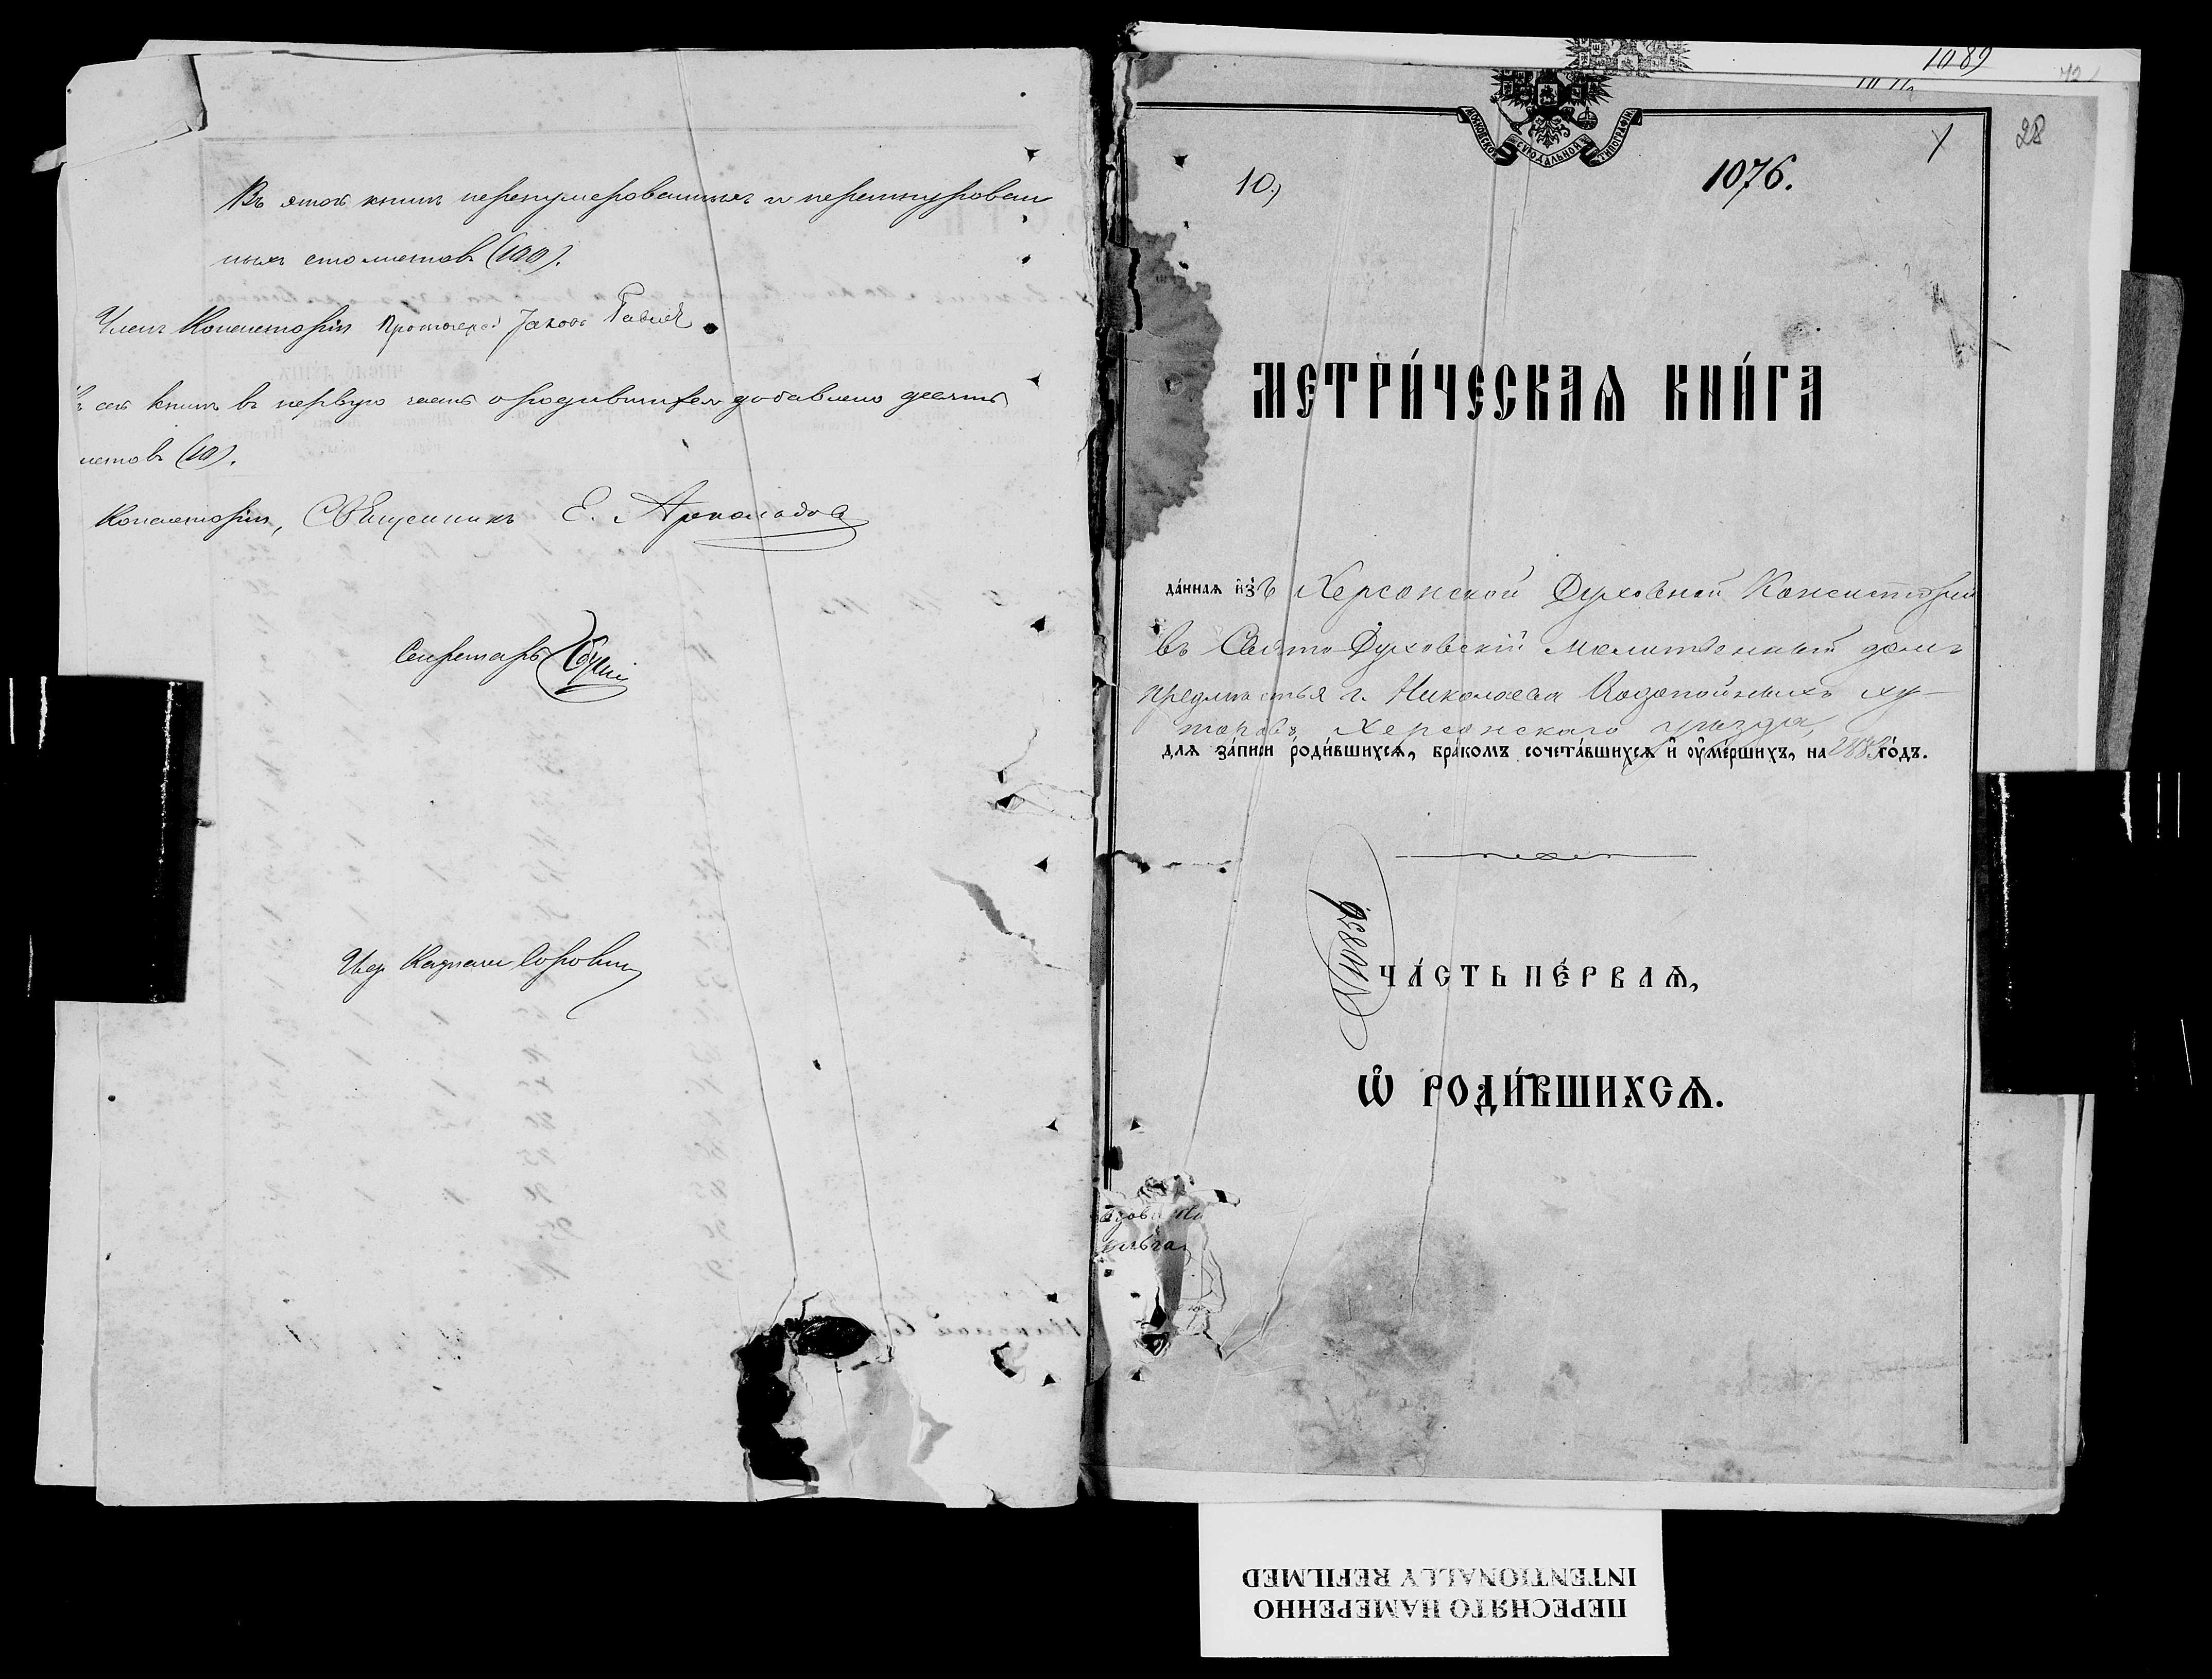 Въ этой книгѣ перенумерованныхъ и перешнурован
ныхъ сто листовъ (100).
Членъ Консисторіи Протоіерей Іаковъ
сей книгѣ въ первую часть о родившихся добавлено десять
листовъ (10).
Консисторіи, Священникъ Е.
Секретарь
1089
28
МОСКОВСКОЙ СѴНОДАЛЬНОЙ ТИПОГРАФІИ
10)
1076.
МЕТРИ́ЧЕСКАѦ КНИ́ГА
да́ннаѧ и҆зъ Херсонской Духовной Консисторіи
въ Свято-Духовскій молитвенный домъ
предмѣстья г. Николаева Водопойныхъ ху-
торовъ Херсонскаго уѣзда,
длѧ за́писи роди́вшихсѧ, бра́комъ сочета́вшихсѧ и҆ ᲂу҆ме́ршихъ, на го́дъ.
№ 10856
ЧА́СТЬ ПЕ́РВАѦ,
Ѽ РОДИ́ВШИХСѦ.
ПЕРЕСНЯТО НАМЕРЕННО
INTENTIONALLY REFILMED